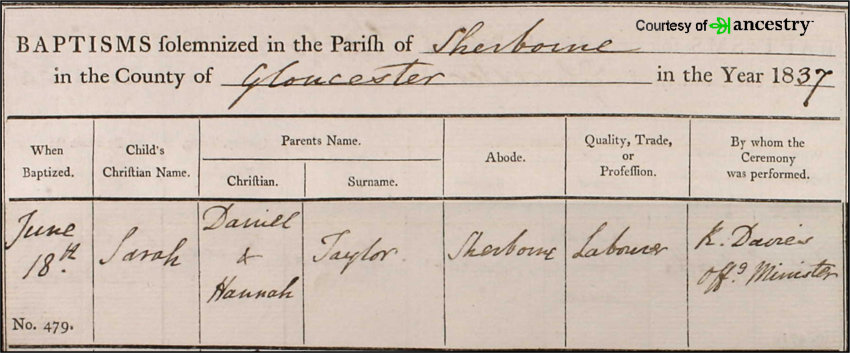 Courtesy of ancestry
BAPTISMS ſolemnized in the Pariſh of Sherborne
in the County of Gloucester in the Year 1837
When
Baptized.
Child's
Chriſtian Name.
Parents Name.
Chriſtian.
Surname.
Abode.
Quality, Trade,
or
Profeſſion.
By whom the
Ceremony
was performed.
June
18th.
Sarah
Daniel
&
Hannah
Taylor.
Sherborne
Labourer
R. Davies
Offg Minister
No. 479.